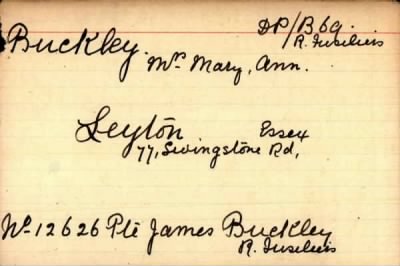 DP/B69.
Buckley. R. Fusiliers
Mrs Mary, Ann.
Leyton Essex
77, Livingstone Rd,
No 12626 Pte James Buckley
R. Fusiliers